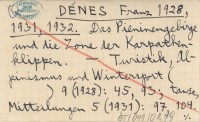 DÉNES Franz 1928,
1931, 1932. Das Pieninengebirge
und die Zone der Karpathen-
klippen. — Turistik, Al-
pinismus und Wintersport (
) 9 (1928): 45, 93; tausen
Mitteilungen 5 (1931): 97, 104,